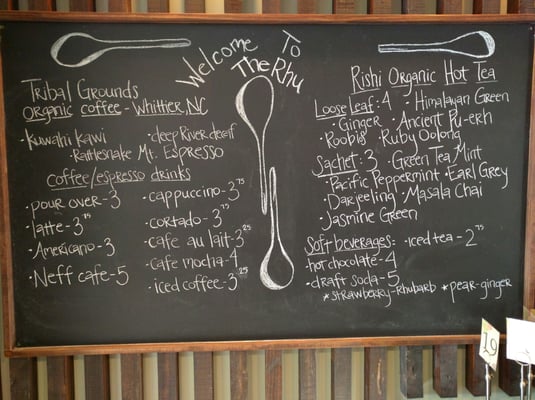 Welcome To
The Rhu
Tribal Grounds
Organic coffee - Whittier, NC
· Kuwahi Kawi · deep River decaf
· Rattlesnake Mt. Espresso
Coffee/espresso drinks
pour over - 3
· latte - 3.75
· Americano - 3
· Neff cafe - 5
· cappuccino - 3.75
· cortado - 3.75
· cafe au lait - 3.25
· cafe mocha - 4
· iced coffee - 3.25
Rishi Organic Hot Tea
Loose Leaf: 4 · Himalayan Green
· Ginger · Ancient Pu-erh
· Roobis · Ruby Oolong
Sachet: 3 · Green Tea Mint
· Pacific Peppermint · Earl Grey
· Darjeeling · Masala Chai
· Jasmine Green
Soft beverages: · iced tea - 2.75
· hot chocolate - 4
· draft soda - 5
* strawberry-rhubarb * pear-ginger
19